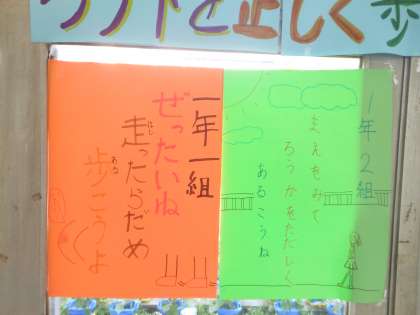 を正しく歩
1年2組
まえをみて
ろうかをただしく
あるこうね
一年一組
ぜったいね
走ったらだめ
歩こうよ